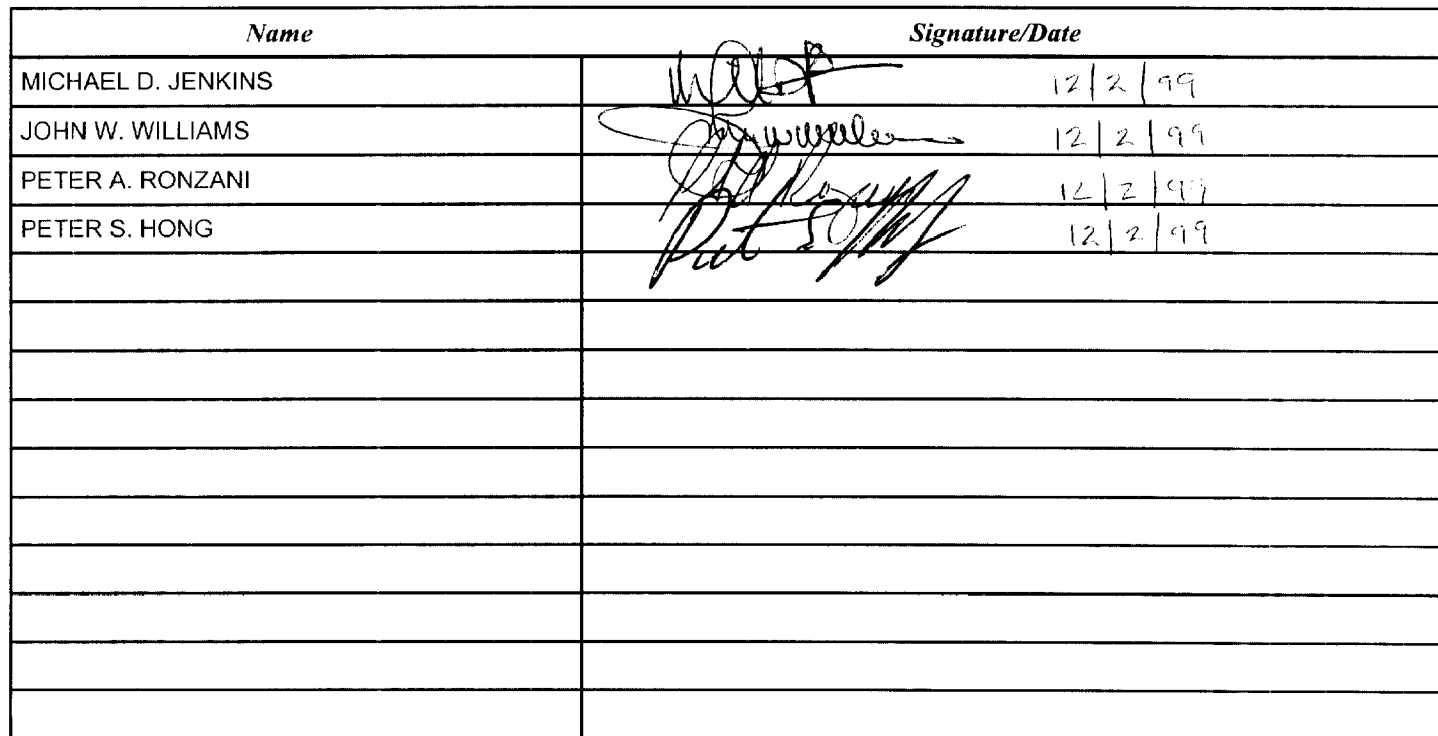 Name Signature/Date
MICHAEL D. JENKINS 12/2/99
JOHN W. WILLIAMS 12/2/99
PETER A. RONZANI 12/2/99
PETER S. HONG 12/2/99